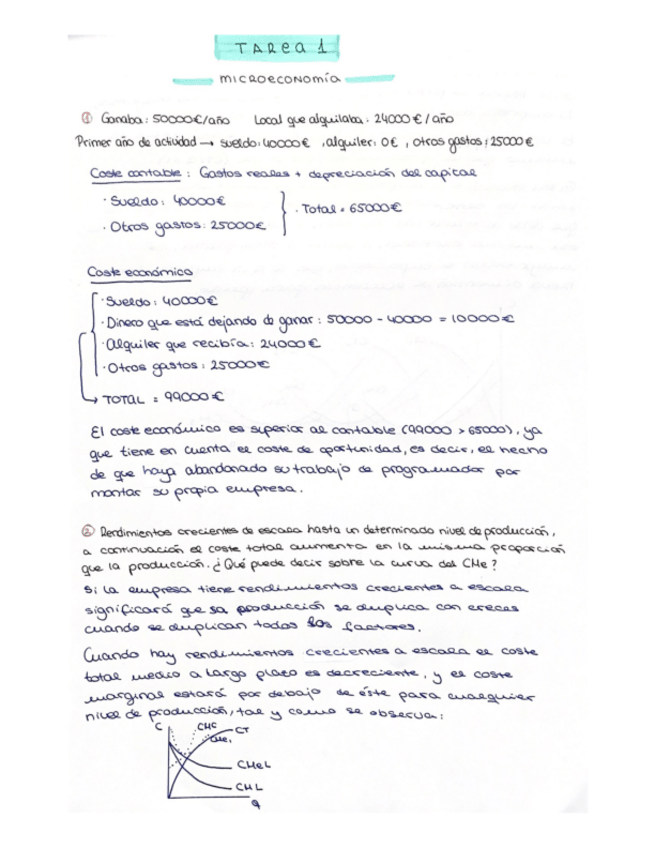 TAREA 1
MICROECONOMÍA
① Ganaba: 50000€/año Local que alquilaba: 24000 €/año
Primer año de actividad → sueldo: 40000€, alquiler: 0€, otros gastos: 25000€
Coste contable: Gastos reales + depreciación del capital
· Sueldo: 40000€
· Total = 65000€
· Otros gastos: 25000€
Coste económico
· Sueldo: 40000€
· Dinero que está dejando de ganar: 50000 - 40000 = 10000€
· Alquiler que recibía: 24000€
· Otros gastos: 25000€
→ TOTAL = 99000€
El coste económico es superior al contable (99000 > 65000), ya
que tiene en cuenta el coste de oportunidad, es decir, el hecho
de que haya abandonado su trabajo de programador por
montar su propia empresa.
② Rendimientos crecientes de escala hasta un determinado nivel de producción,
a continuación el coste total aumenta en la misma proporción
que la producción. ¿Qué puede decir sobre la curva del CMe?
Si la empresa tiene rendimientos crecientes a escala
significará que sa producción se duplica con creces
cuando se duplican todos los factores.
Cuando hay rendimientos crecientes a escala el coste
total medio a largo plazo es decreciente, y el coste
marginal estará por debajo de éste para cualquier
nivel de producción, tal y como se observa:
C CMC CT
CMeL
CML
Q